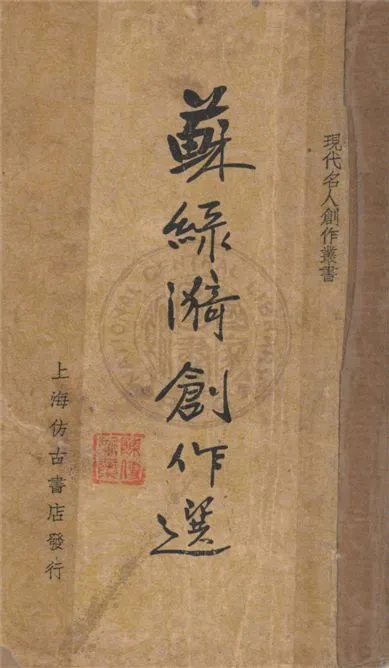 現代名人創作叢書
蘇綠漪創作選
上海仿古書店發行
NATIONAL